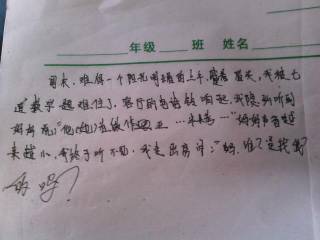 年级 班 姓名
周末，难得一个阳光明媚的上午，我被七
道数学题难住了，客厅的电话铃响起，我隐约听到
妈妈说：“他(她)在做作业……”妈妈声音越
来越小，我终于听不见，我走出房门：“妈，谁？是找我
的吗？